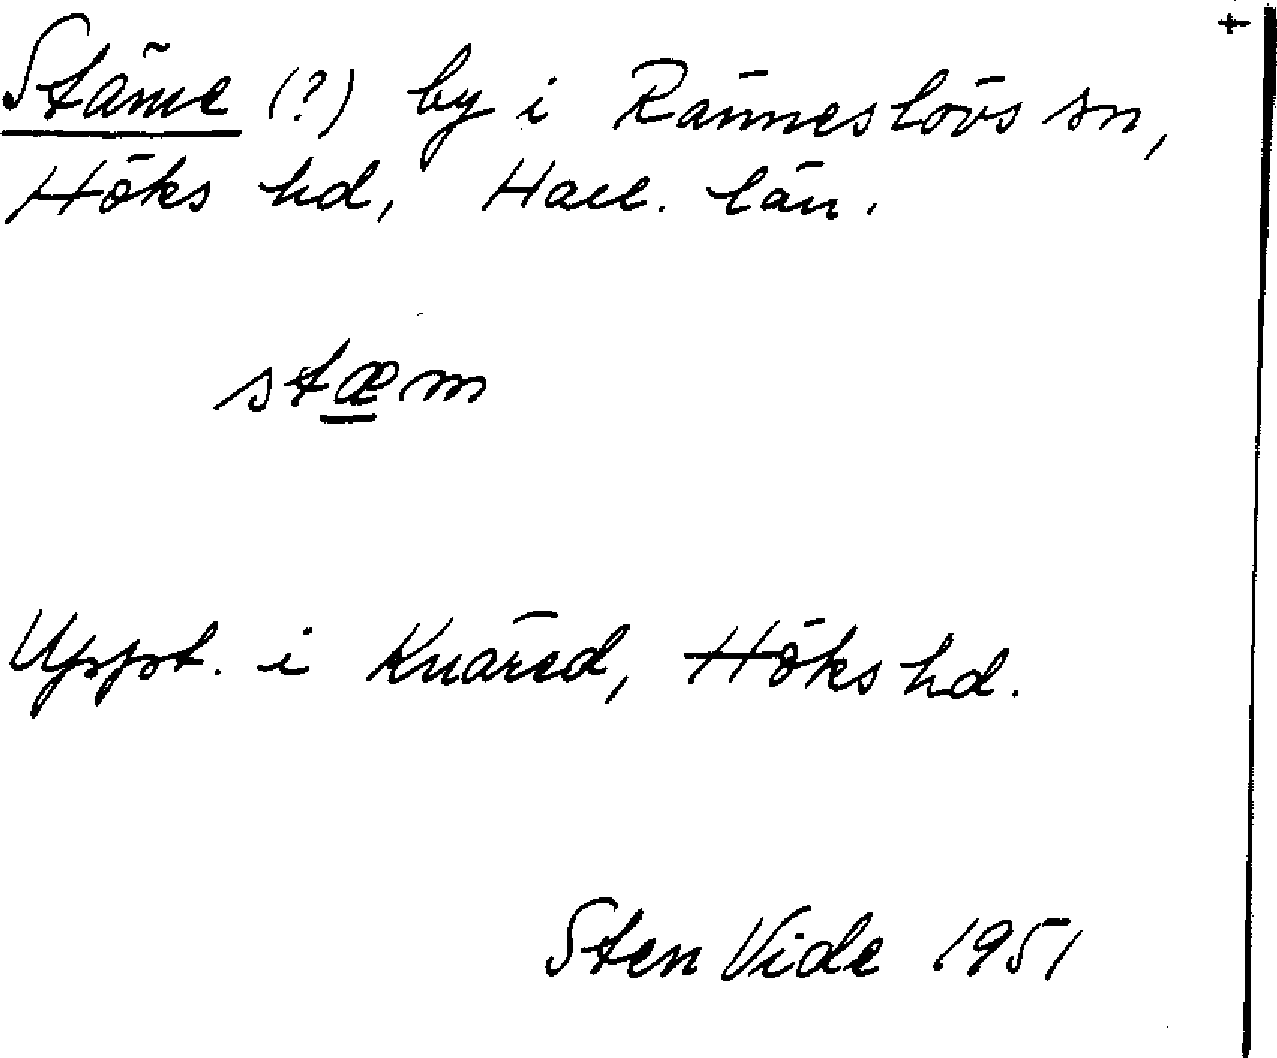 Stäme (?) by i Ränneslövs sn,
Höks hd, Hall. län.
stæm
Uppt. i Knäred, Höks hd.
Sten Vide 1951